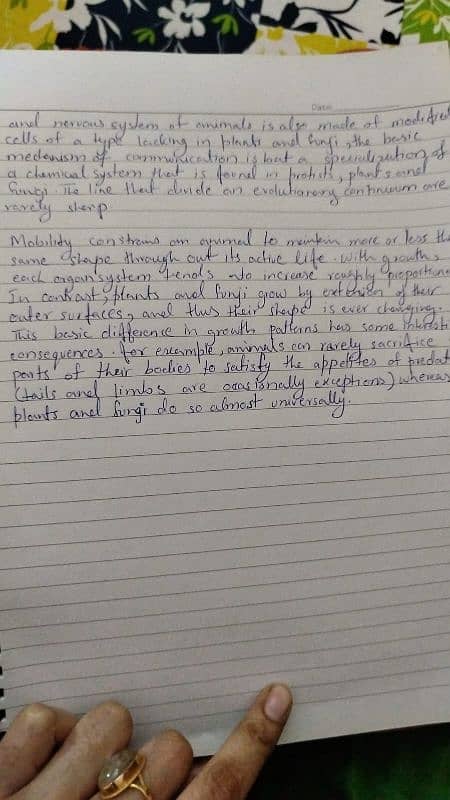 Date
and nervous system of animals is also made of modified
cells of a type lacking in plants and fungi, the basic
mechanism of communication is but a specialization of
a chemical system that is found in protists, plants and
fungi. The line that divide an evolutionary continuum are
rarely sharp.
Mobility constrains an animal to maintain more or less the
same shape through out its active life. With growth,
each organ system tends to increase roughly proportiona
In contrast, plants and fungi grow by extension of their
outer surfaces, and thus their shape is ever changing.
This basic difference in growth patterns has some interesti
consequences. for example, animals can rarely sacrifice
parts of their bodies to satisfy the appetites of predat
(tails and limbs are occasionally exceptions) whereas
plants and fungi do so almost universally.